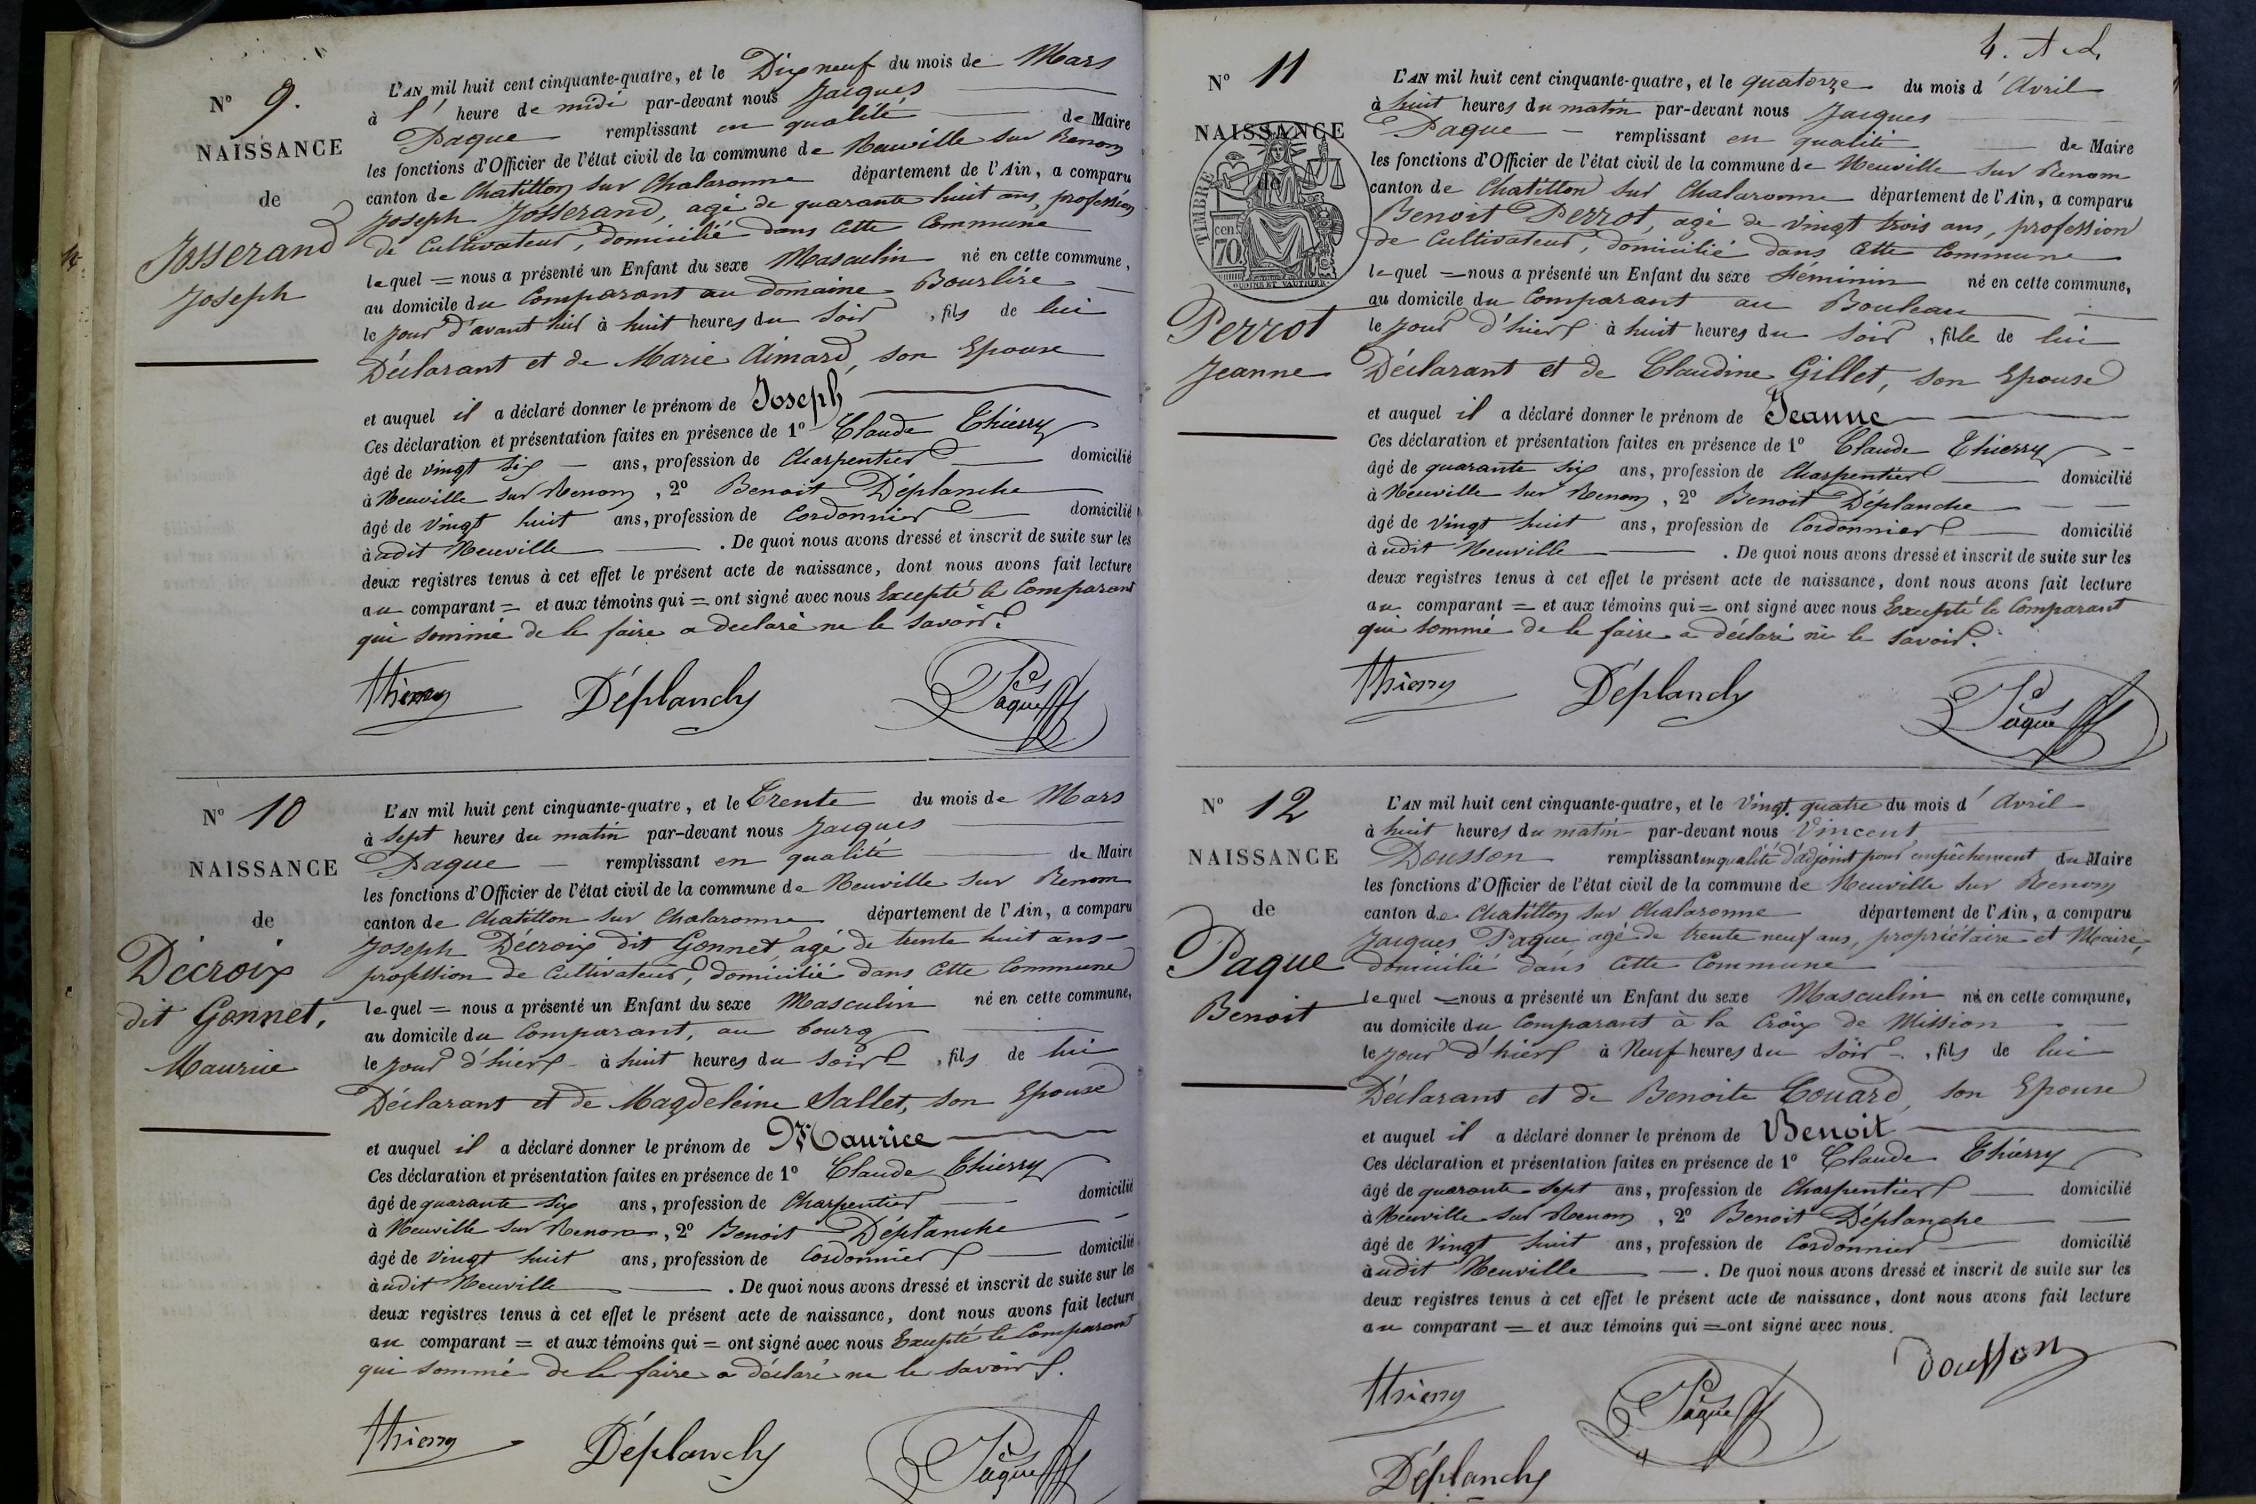 N° 9.
NAISSANCE
de
Josserand
Joseph
L'AN mil huit cent cinquante-quatre, et le Dix neuf du mois de Mars
à l' heure de midi par-devant nous Jacques
Paque remplissant en qualité de Maire
les fonctions d'Officier de l'état civil de la commune de Neuville sur Renom
canton de Chatillon sur Chalaronne département de l'Ain, a comparu
Joseph Josserand, agé de quarante huit ans, profession
de Cultivateur, domicilié dans cette Commune
lequel = nous a présenté un Enfant du sexe Masculin né en cette commune,
au domicile du Comparant au domaine Bourlire
le jour d'avant hier à huit heures du soir, fils de lui
Déclarant et de Marie Aimard, son Epouse
et auquel il a déclaré donner le prénom de Joseph
Ces déclaration et présentation faites en présence de 1° Claude Thierry
âgé de vingt six ans, profession de Charpentier domicilié
à Neuville sur Renom, 2° Benoit Déplanche
âgé de vingt huit ans, profession de Cordonnier domicilié
à udit Neuville . De quoi nous avons dressé et inscrit de suite sur les
deux registres tenus à cet effet le présent acte de naissance, dont nous avons fait lecture
au comparant = et aux témoins qui = ont signé avec nous Excepté le Comparant
qui sommé de le faire a declaré ne le savoir.
Thierry Déplanche Paque
N° 10
NAISSANCE
de
Décroix
dit Gonnet,
Maurice
L'AN mil huit cent cinquante-quatre, et le Trente du mois de Mars
à sept heures du matin par-devant nous Jacques
Paque remplissant en qualité de Maire
les fonctions d'Officier de l'état civil de la commune de Neuville sur Renom
canton de Chatillon sur Chalaronne département de l'Ain, a comparu
Joseph Décroix dit Gonnet, agé de trente huit ans
profession de Cultivateur, domicilié dans cette Commune
lequel = nous a présenté un Enfant du sexe Masculin né en cette commune,
au domicile du Comparant, au bourg
le jour d'hier à huit heures du soir, fils de lui
Déclarant et de Magdeleine Sallet, son Epouse
et auquel il a déclaré donner le prénom de Maurice
Ces déclaration et présentation faites en présence de 1° Claude Thierry
âgé de quarante six ans, profession de Charpentier domicilié
à Neuville sur Renom, 2° Benoit Déplanche
âgé de vingt huit ans, profession de Cordonnier domicilié
à udit Neuville . De quoi nous avons dressé et inscrit de suite sur les
deux registres tenus à cet effet le présent acte de naissance, dont nous avons fait lecture
au comparant = et aux témoins qui = ont signé avec nous Excepté le Comparant
qui sommé de le faire a déclaré ne le savoir.
Thierry Déplanche Paque
N° 11
NAISSANCE
de
TIMBRE
cen.
70
OUDINÉ ET VAUTHIER.
Perrot
Jeanne
L'AN mil huit cent cinquante-quatre, et le quatorze du mois d'Avril
à huit heures du matin par-devant nous Jacques
Paque remplissant en qualité de Maire
les fonctions d'Officier de l'état civil de la commune de Neuville sur Renom
canton de Chatillon sur Chalaronne département de l'Ain, a comparu
Benoit Perrot, agé de vingt trois ans, profession
de Cultivateur, domicilié dans cette Commune
lequel = nous a présenté un Enfant du sexe Féminin né en cette commune,
au domicile du Comparant au Bouleau
le jour d'hier à huit heures du soir, fille de lui
Déclarant et de Claudine Gillet, son Epouse
et auquel il a déclaré donner le prénom de Jeanne
Ces déclaration et présentation faites en présence de 1° Claude Thierry
âgé de quarante six ans, profession de Charpentier domicilié
à Neuville sur Renom, 2° Benoit Déplanche
âgé de vingt huit ans, profession de Cordonnier domicilié
à udit Neuville . De quoi nous avons dressé et inscrit de suite sur les
deux registres tenus à cet effet le présent acte de naissance, dont nous avons fait lecture
au comparant = et aux témoins qui = ont signé avec nous Excepté le Comparant
qui sommé de le faire a déclaré ne le savoir.
Thierry Déplanche Paque
N° 12
NAISSANCE
de
Paque
Benoit
L'AN mil huit cent cinquante-quatre, et le vingt quatre du mois d'Avril
à huit heures du matin par-devant nous Vincent
Dousson remplissant en qualité d'adjoint pour empêchement du Maire
les fonctions d'Officier de l'état civil de la commune de Neuville sur Renom
canton de Chatillon sur Chalaronne département de l'Ain, a comparu
Jacques Paque, agé de trente neuf ans, propriétaire et Maire,
domicilié dans cette Commune
lequel = nous a présenté un Enfant du sexe Masculin né en cette commune,
au domicile du Comparant à la Croix de Mission
le jour d'hier à Neuf heures du soir, fils de lui
Déclarant et de Benoite Couard, son Epouse
et auquel il a déclaré donner le prénom de Benoit
Ces déclaration et présentation faites en présence de 1° Claude Thierry
âgé de quarante sept ans, profession de Charpentier domicilié
à Neuville sur Renom, 2° Benoit Déplanche
âgé de vingt huit ans, profession de Cordonnier domicilié
à udit Neuville . De quoi nous avons dressé et inscrit de suite sur les
deux registres tenus à cet effet le présent acte de naissance, dont nous avons fait lecture
au comparant = et aux témoins qui = ont signé avec nous.
Dousson
Thierry Paque
Déplanche